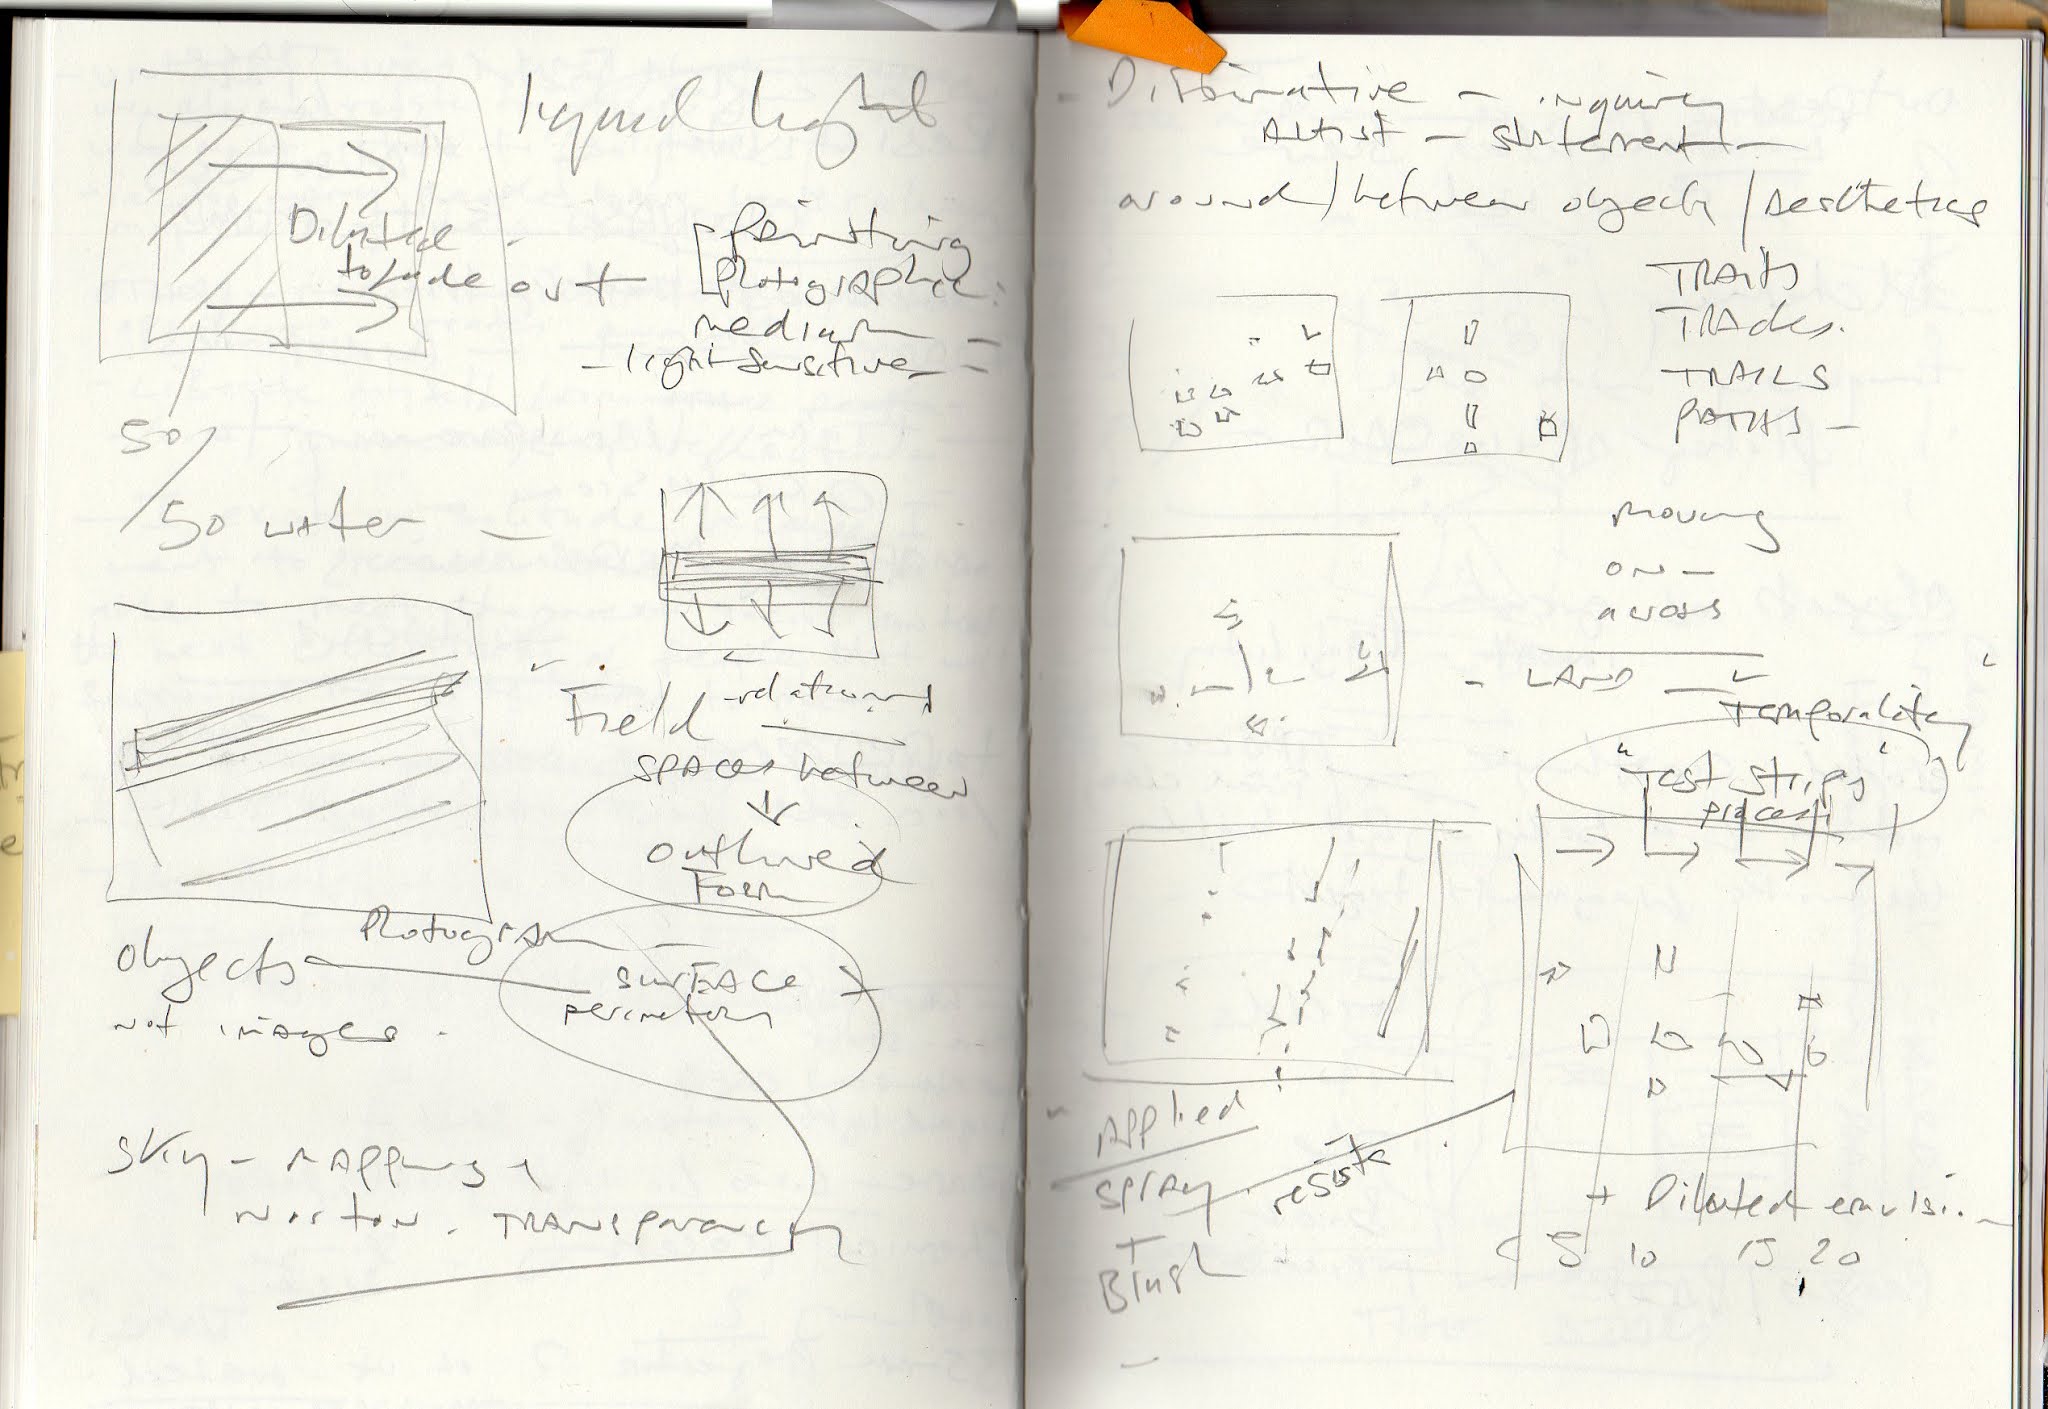 liquid light
Diluted -
to fade out
painting
photographic
medium -
- light sensitive -
50/
50 water -
"Field - relational
spaces between
outlined
Form
Photogram -
objects
not images.
SURFACE +
perimeters
Sky - mapping +
notion. TRANSPARENCY
inquiry
Artist - statement -
around / between objects / Aesthetics
TRAITS
TRACES.
TRAILS
PATHS -
moving
on -
across
- LAND -
"Temporality"
"Test strips"
process
"Applied
Spray
resists
+
Brush
-
+ Diluted emulsion
5 10 15 20